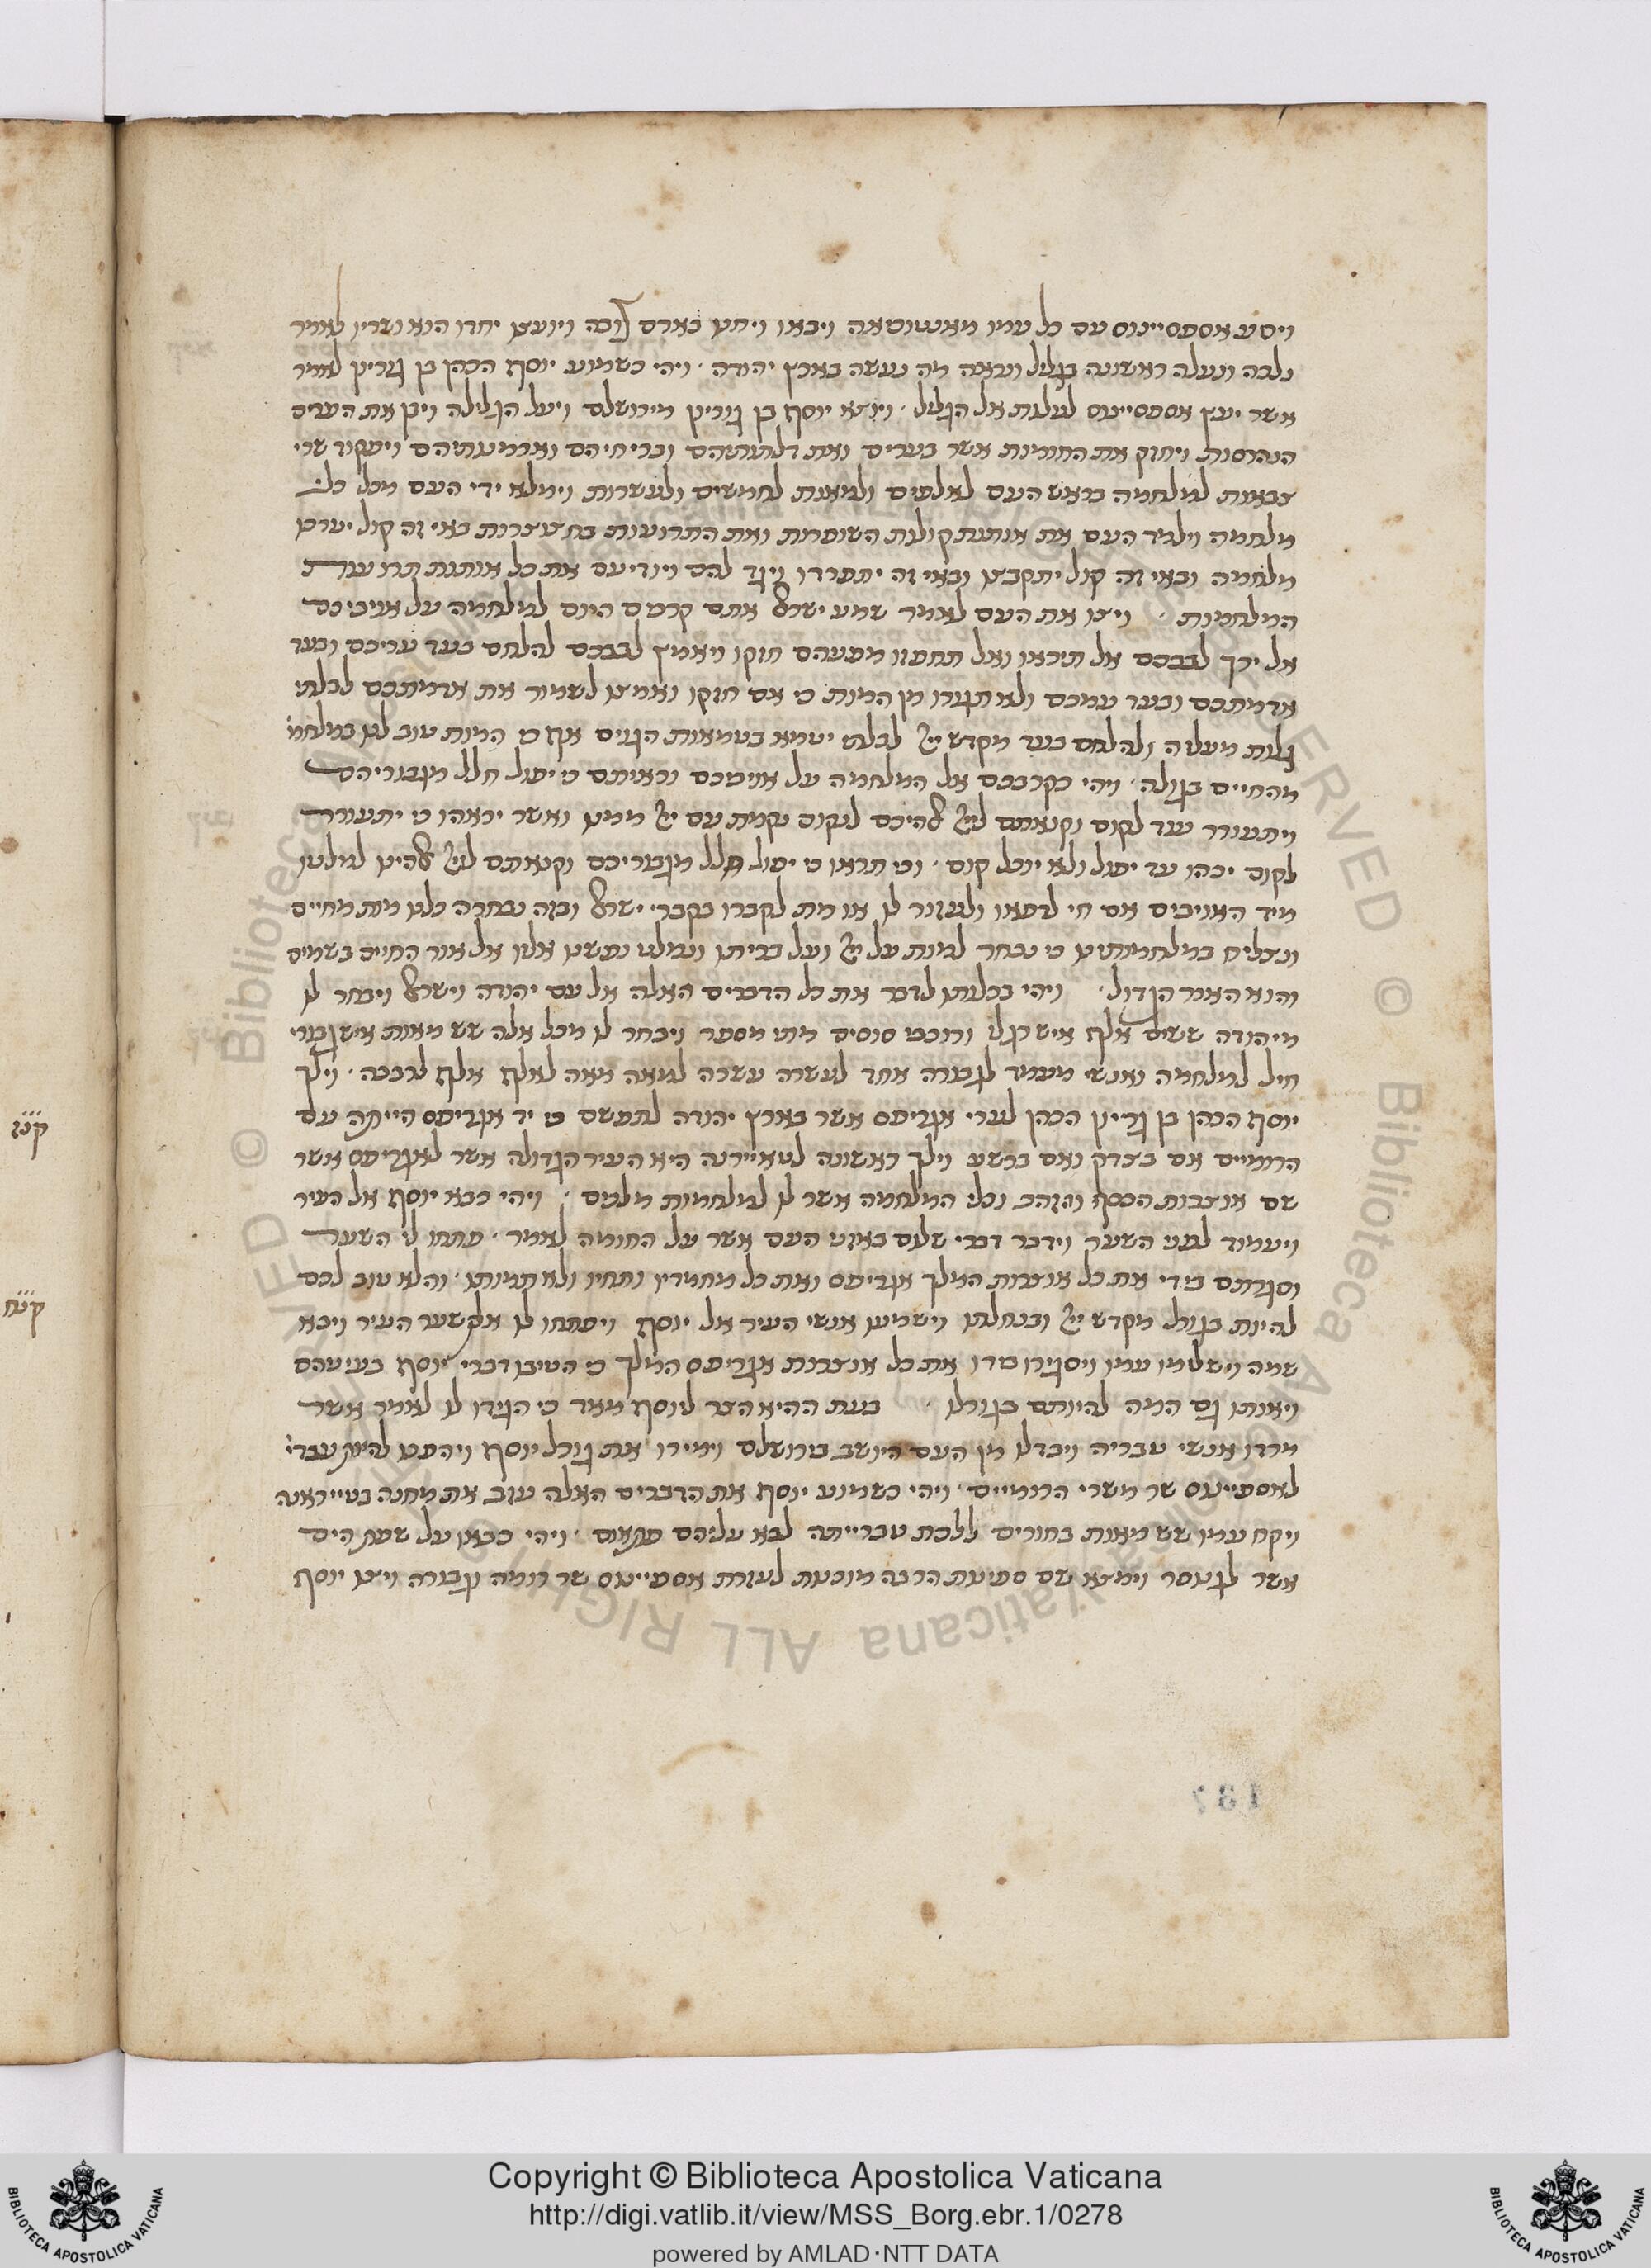 ויסע אספסיינוס עם כל עמו מאנטוכאה ויבאו ויחנו בארם צובה ויועצו יחדו הוא ושריו לאמר
נלכה ונעלה ראשונה בגליל ונראה מה נעשה בארץ יהודה ויהי כשמוע יוסף הכהן בן גוריון לאמר
אשר יעץ אספסיינוס לעלות אל הגליל ויצא יוסף בן גוריון מירושלם ויעל הגלילה ויבן את הערים
הנהרסות ויחזק את החומות אשר בערים ואת דלתותיהם ובריחיהם וארמנותיהם ויפקוד שרי
צבאות למלחמה בראש העם לאלפים ולמאות לחמשים ולעשרות וימלא ידי העם מכל כלי
מלחמה וילמד העם את אותות קולות השופרות ואת התרועות בחצוצרות באי זה קול יערכו
מלחמה ובאי זה קול יתקבצו ובאי זה יתפרדו ויגד להם ויודיעם את כל אותות תרועות
המלחמות ויצו את העם לאמר שמע ישראל אתם קרבים היום למלחמה על אויביכם
אל ירך לבבכם אל תיראו ואל תחפזו מפניהם חזקו ויאמץ לבבכם להלחם בעד עריכם ובעד
אדמתכם ובעד עמכם ולא תגורו מן המות כי אם חזקו ואמצו לשמור את אדמתכם לבלתי
גלות מעליה ולהלחם בעד מקדש ייי לבלתי יטמא בטמאות הגוים אף כי המות טוב לנו במלחמה
מהחיים בגולה ויהי כקרבכם אל המלחמה על אויביכם וראיתם כי יפול חלל מגבוריהם
ויתעורר עוד לקום וקנאתם לייי אלהיכם לנקום נקמת עם ייי ממנו ואשר יראהו כי יתעורר
לקום יכהו עד יפול ולא יוכל קום וכי תראו כי יפול חלל מגבוריכם וקנאתם לייי אלהינו למלטו
מיד האויבים אם חי לרפאו ולעזור לו או מת לקברו בקברי ישראל ובזה נבחרה כלנו מות מחיים
ונצליח במלחמותינו כי נבחר למות על ייי ועל בריתו ונמלט נפשנו אליו אל אור החיים בשמים
והוא האור הגדול ויהי ככלותו לדבר את כל הדברים האלה אל עם יהודה וישראל ויבחר לו
מיהודה ששים אלף איש רגלי ורוכבי סוסים מתי מספר ויבחר לו מכל אלה שש מאות איש גבורי
חיל למלחמה ואנשי מעמד לגבורה אחד לעשרה עשרה למאה מאה לאלף אלף לרבבה וילך
יוסף הכהן בן גוריון הכהן לערי אגריפס אשר בארץ יהודה לתפשם כי יד אגריפס הייתה עם
הרומיים אם בצדק ואם ברשע וילך ראשונה לטאיירנה היא העיר הגדולה אשר לאגריפס אשר
שם אוצרות הכסף והזהב וכלי המלחמה אשר לו למלחמות מלכים ויהי כבא יוסף אל העיר
ויעמוד לפני השער וידבר דברי שלום באזני העם אשר על החומה לאמר פתחו לי השער
וסגרתם בידי את כל אוצרות המלך אגריפס ואת כל מחמדיו ותחיו ולא תמותו והלא טוב לכם
להיות בגורל מקדש ייי ובנחלתו וישמעו אנשי העיר אל יוסף ויפתחו לו את שער העיר ויבא
שמה וישלימו עמו ויסגירו בידו את כל אוצרות אגריפס המלך כי הטיבו דברי יוסף בעיניהם
ויאותו גם המה להיותם בגורלו בעת ההיא הצר ליוסף מאד כי הגידו לו לאמר אשר
מרדו אנשי טבריה ויבדלו מן העם היושב בירושלם וימירו את גורל יוסף ויהפכו להיות עבדי
לאספיינוס שר משרי הרומיים ויהי כשמוע יוסף את הדברים האלה עזב את מחנה בטייראנה
ויקח עמו שש מאות בחורים ללכת טברייתה לבא עליהם פתאום ויהי כבאו על שפת הים
אשר לגינוסר וימצא שם ספינות הרבה מוכנות לעזרת אספיינוס שר רומה וגבורה ויצו יוסף
קנז
קנח
137
Copyright © Biblioteca Apostolica Vaticana
http://digi.vatlib.it/view/MSS_Borg.ebr.1/0278
powered by AMLAD·NTT DATA